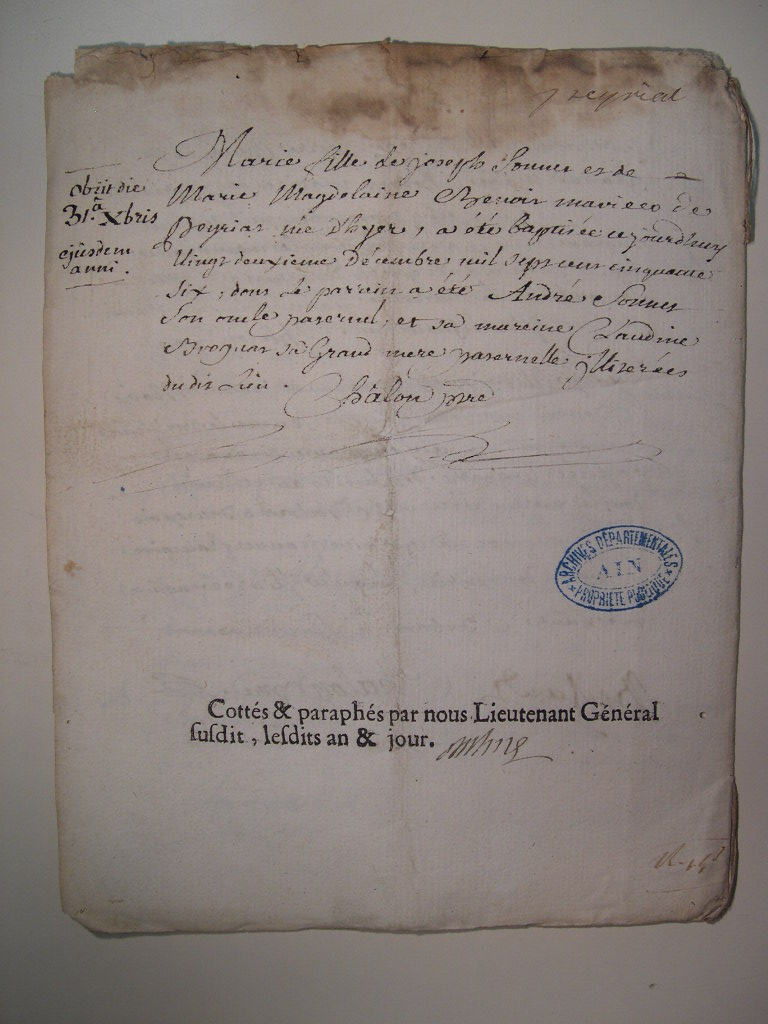 Peyriat
Marie fille de joseph Sonner et de
Marie Magdelaine Benoit mariée de
Peyriat née d'hyer, a été baptisée ce jourdhuy
vingt deuxieme Décembre mil sept cent cinquante
six, dont le parrain a été André Sonner
son oncle paternel, et sa mareine Claudine
sa Grand mere paternelle illiterées
du dit Lieu. Châlon ptre
obiit die
31.a Xbris
ejusdem
anni.
ARCHIVES DÉPARTEMENTALES
AIN
PROPRIÉTÉ PUBLIQUE
Cottés & paraphés par nous Lieutenant Général
susdit, lesdits an & jour.